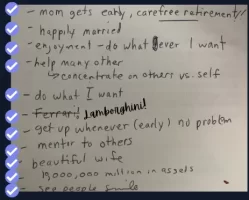 - mom gets early, carefree retirement//
- happily married
- enjoyment - do what ever I want
- help many other
concentrate on others vs. self
- do what I want
- Ferrari Lamborghini!
- get up whenever (early) no problem
- mentor to others
- beautiful wife
- 19,000,000 million in assets
- see people smile